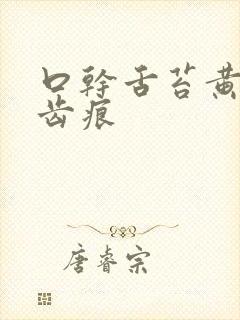 口幹舌苔黄
齿痕
唐睿宗